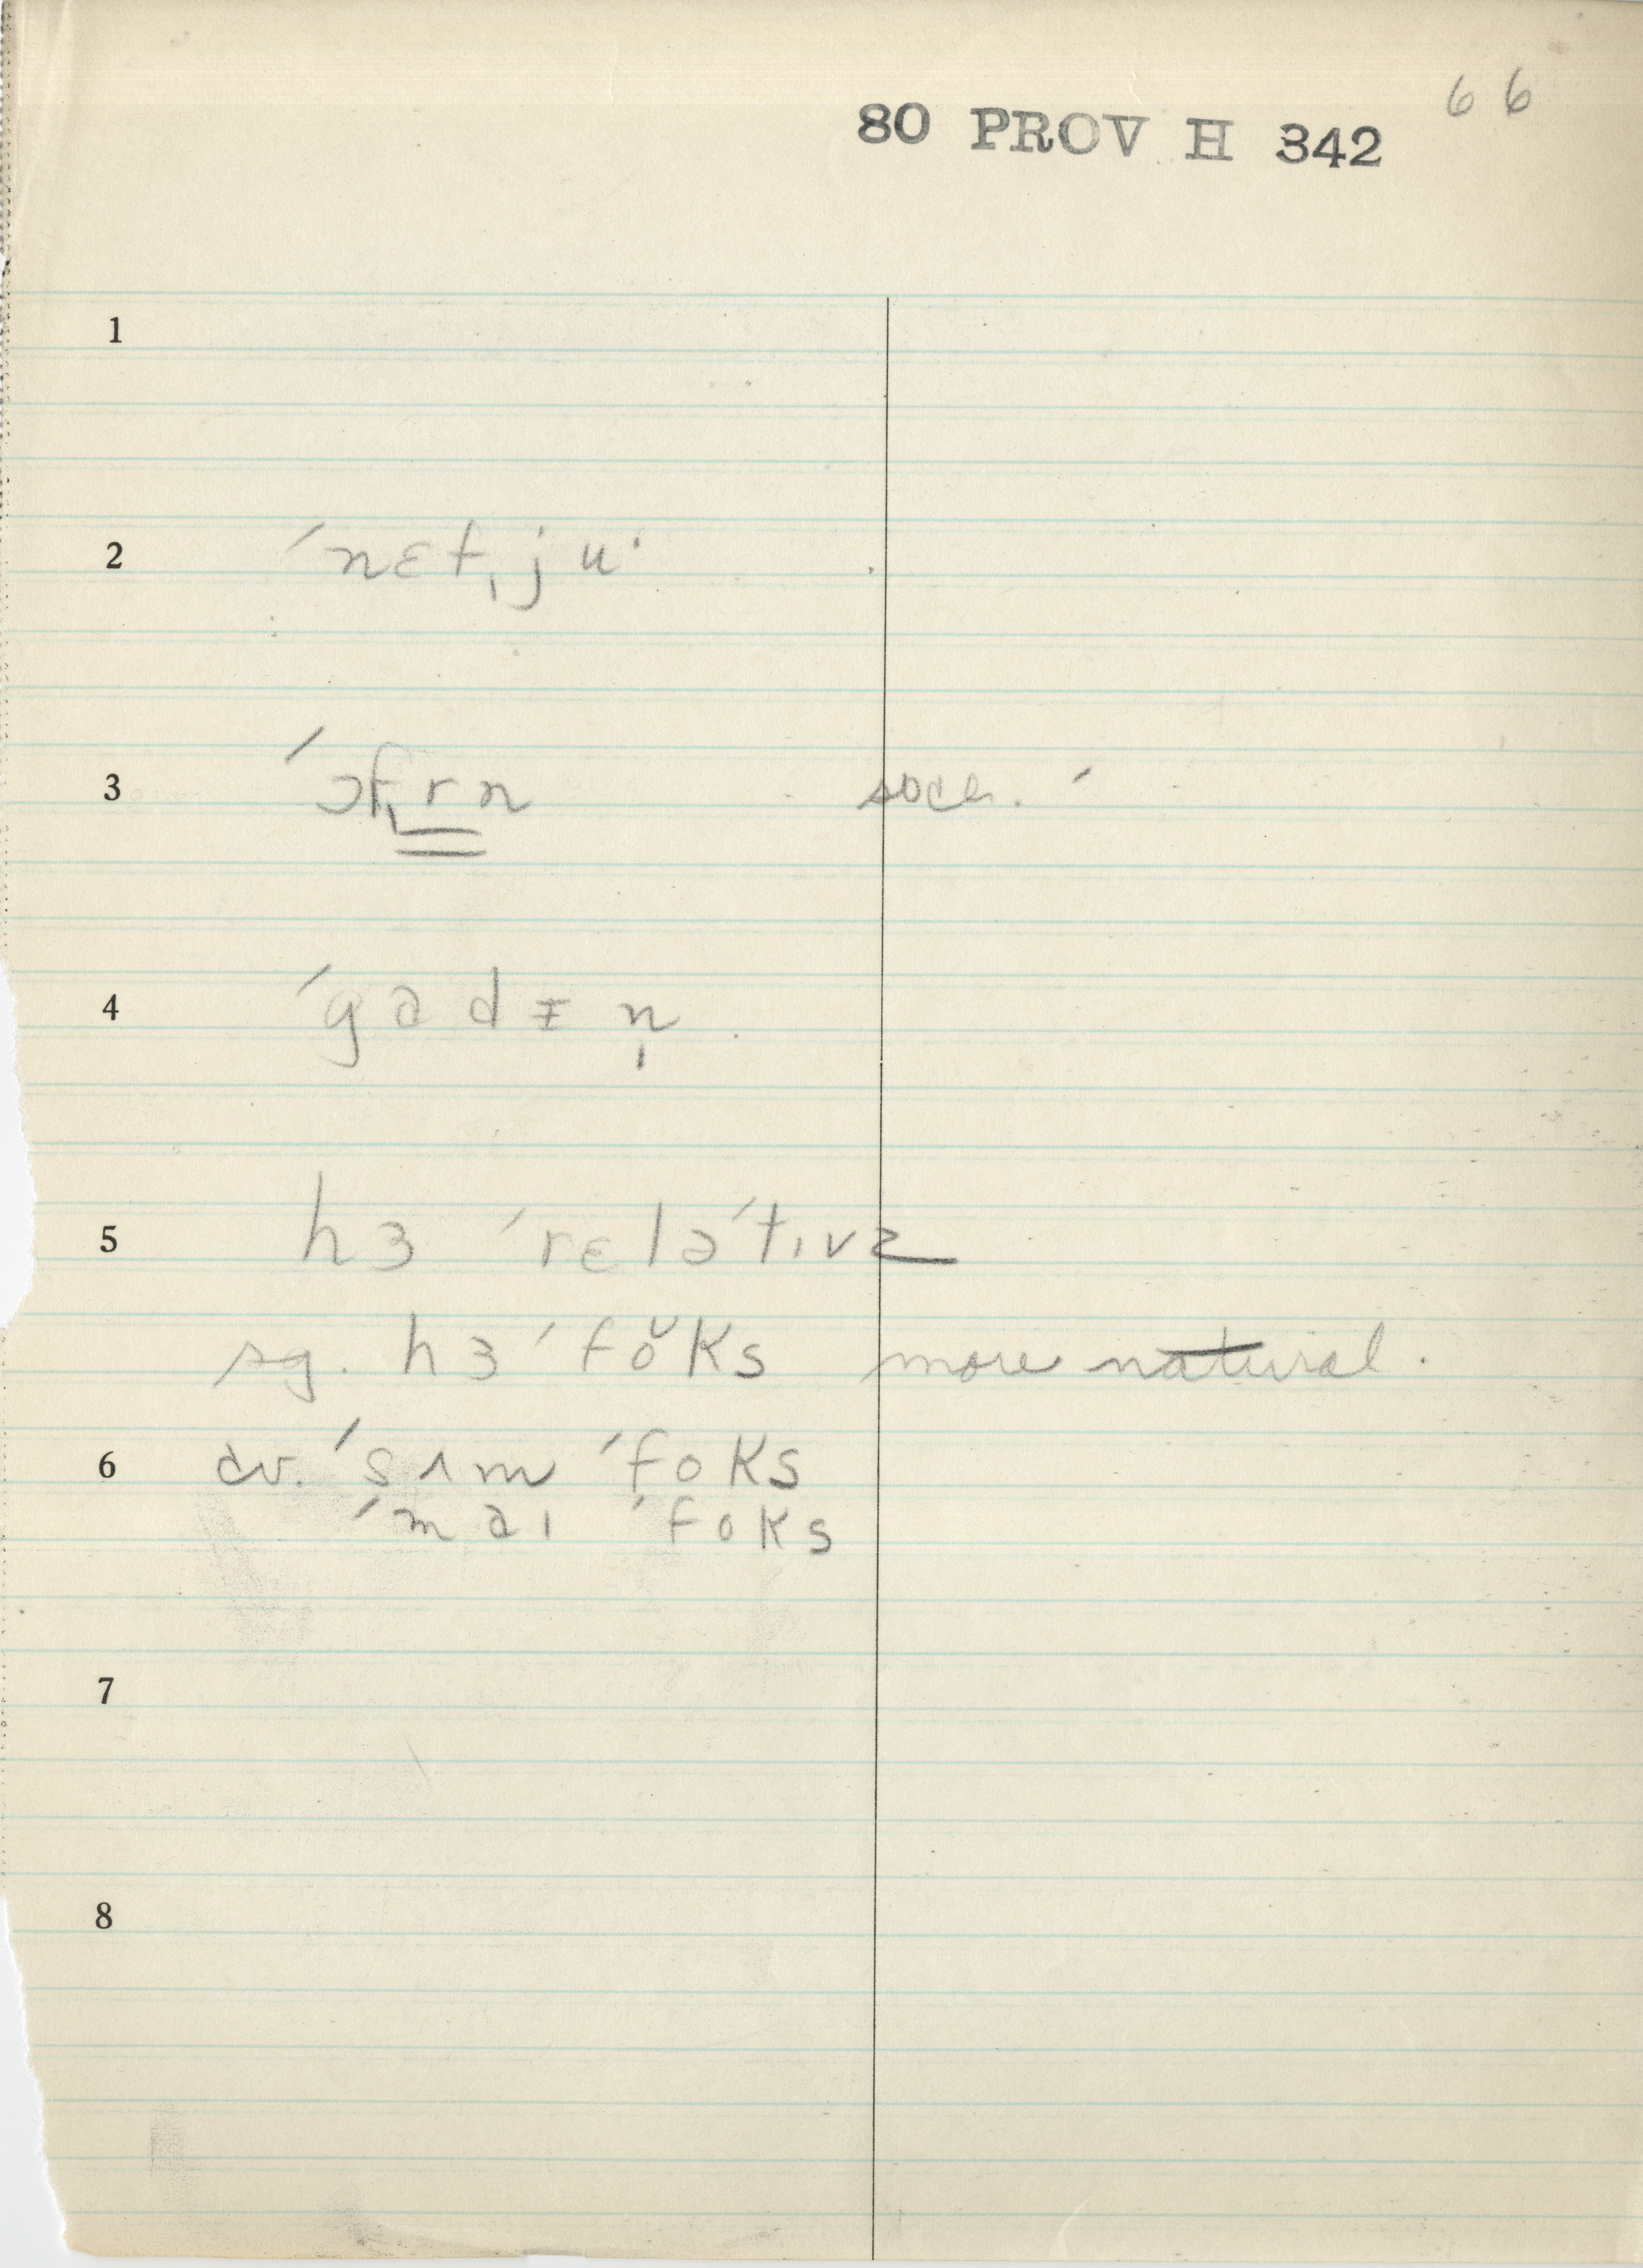 66
80 PROV H 342
1
2 ˈnɛt̩ju·
3 ˈɔf̩rn
4 ˈgadɪn̩
5 hɜ ˈrɛləˈtɪvz
sg. hɜ ˈfŏks more natural.
6 cv. ˈsʌm ˈfoks
ˈmaɪ ˈfoks
7
8